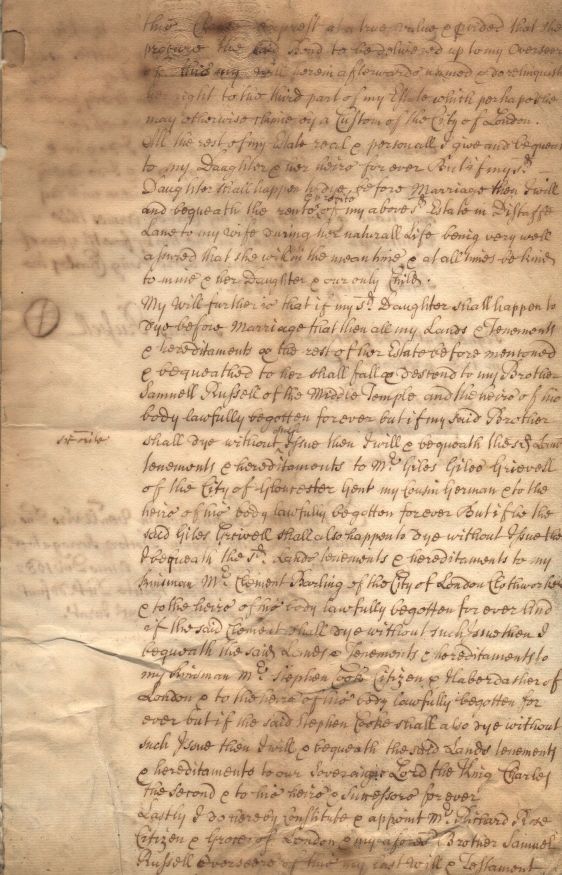 this exprest at a true value & provided that she
procure the said Bond to be delivered up to my Overseers
of this my will herein afterwards named & do relinquish
her right to the third part of my Estate which perhaps she
may otherwise clayme by a Custom of the City of London.
All the rest of my Estate real & personall I give and bequeath
to my Daughter & her heirs for ever But if my sd.
Daughter shall happen to dye before Marriage then I will
and bequeath the rents & profits of my abovesd. Estate in Distaffe
Lane to my Wife during her naturall Life being very well
assured that she will in the mean time & at all times be kind
to mine & her Daughter & our only Child.
My Will further is that if my sd. Daughter shall happen to
dye before Marriage that then all my Lands & Tenements
& hereditaments & the rest of her Estate before mentoned
& bequeathed to her shall fall & descend to my Brother
Samuell Russell of the Middle Temple and the heirs of his
body lawfully begotten for ever but if my said Brother
shall dye without such Issue then I will & bequeath the sd. Lands
tenements & hereditaments to Mr. Giles Giles Grevell
of the City of Gloucester Gent my Cousin German & to the
heirs of his body lawfully begotten for ever But if he the
said Giles Grevell shall also happen to dye without Issue then
I bequeath the sd. Lands tenements & hereditaments to my
kinsman Mr. Clement of the City of London Clothworker
& to the heirs of his body lawfully begotten for ever And
if the said Clement shall dye without such Issue then I
bequeath the said Lands & Tenements & hereditaments to
my kinsman Mr. Stephen Cooke Citizen & Haberdasher of
London & to the heirs of his body lawfully begotten for
ever but if the said Stephen Cooke shall also dye without
such Issue then I will & bequeath the said Lands tenements
& hereditaments to our Soveraigne Lord the King Charles
the second & to his heirs & successors for ever
Lastly I do hereby constitute & appoint Mr. Richard Rose
Citizen & Grocer of London & my aforesd. Brother Samuel
Russell Overseers of this my last Will & Testament